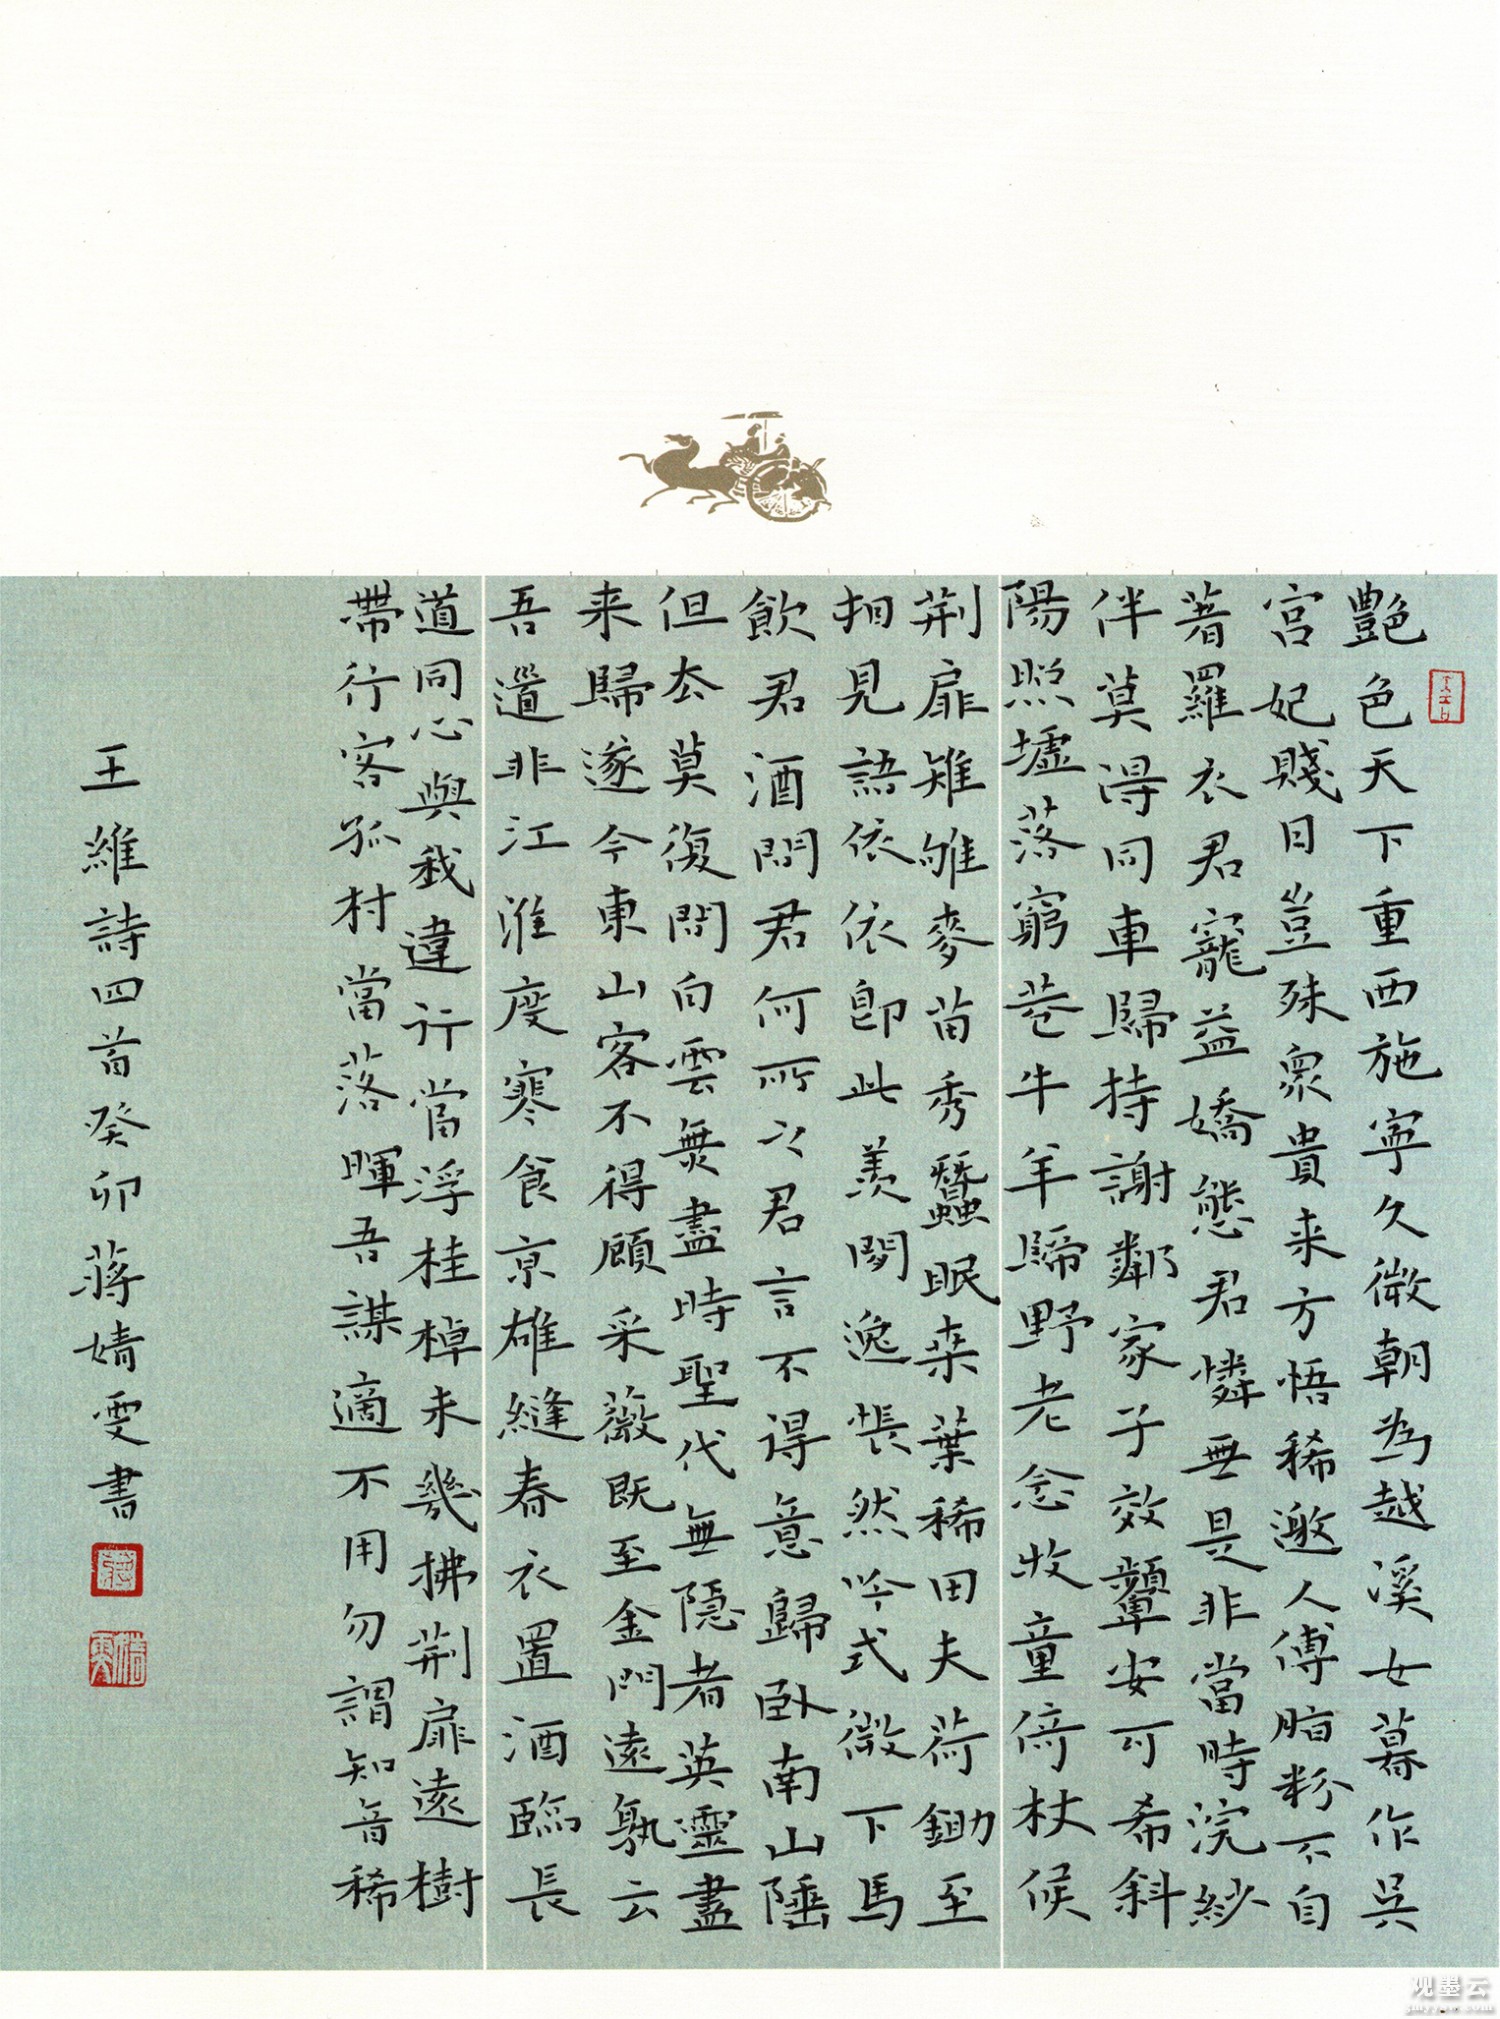 艷色天下重西施寧久微朝為越溪女暮作吳
宮妃賤日豈殊衆貴来方悟稀邀人傅脂粉不自
著羅衣君寵益嬌態君憐無是非當時浣紗
伴莫得同車歸持謝鄰家子效顰安可希斜
陽照墟落窮巷牛羊歸野老念牧童倚杖候
荆扉雉雊麥苗秀蠶眠桒葉稀田夫荷鋤至
相見語依依卽此羨閑逸悵然吟式微下馬
飲君酒問君何所之君言不得意歸卧南山陲
但去莫復問白雲無盡時聖代無隱者英靈盡
来歸遂令東山客不得顧采薇既至金門遠孰云
吾道非江淮度寒食京雒縫春衣置酒臨長
道同心與我違行當浮桂棹未幾拂荆扉遠樹
帶行客孤村當落暉吾謀適不用勿謂知音稀
王維詩四首癸卯蔣婧雯書
观墨云